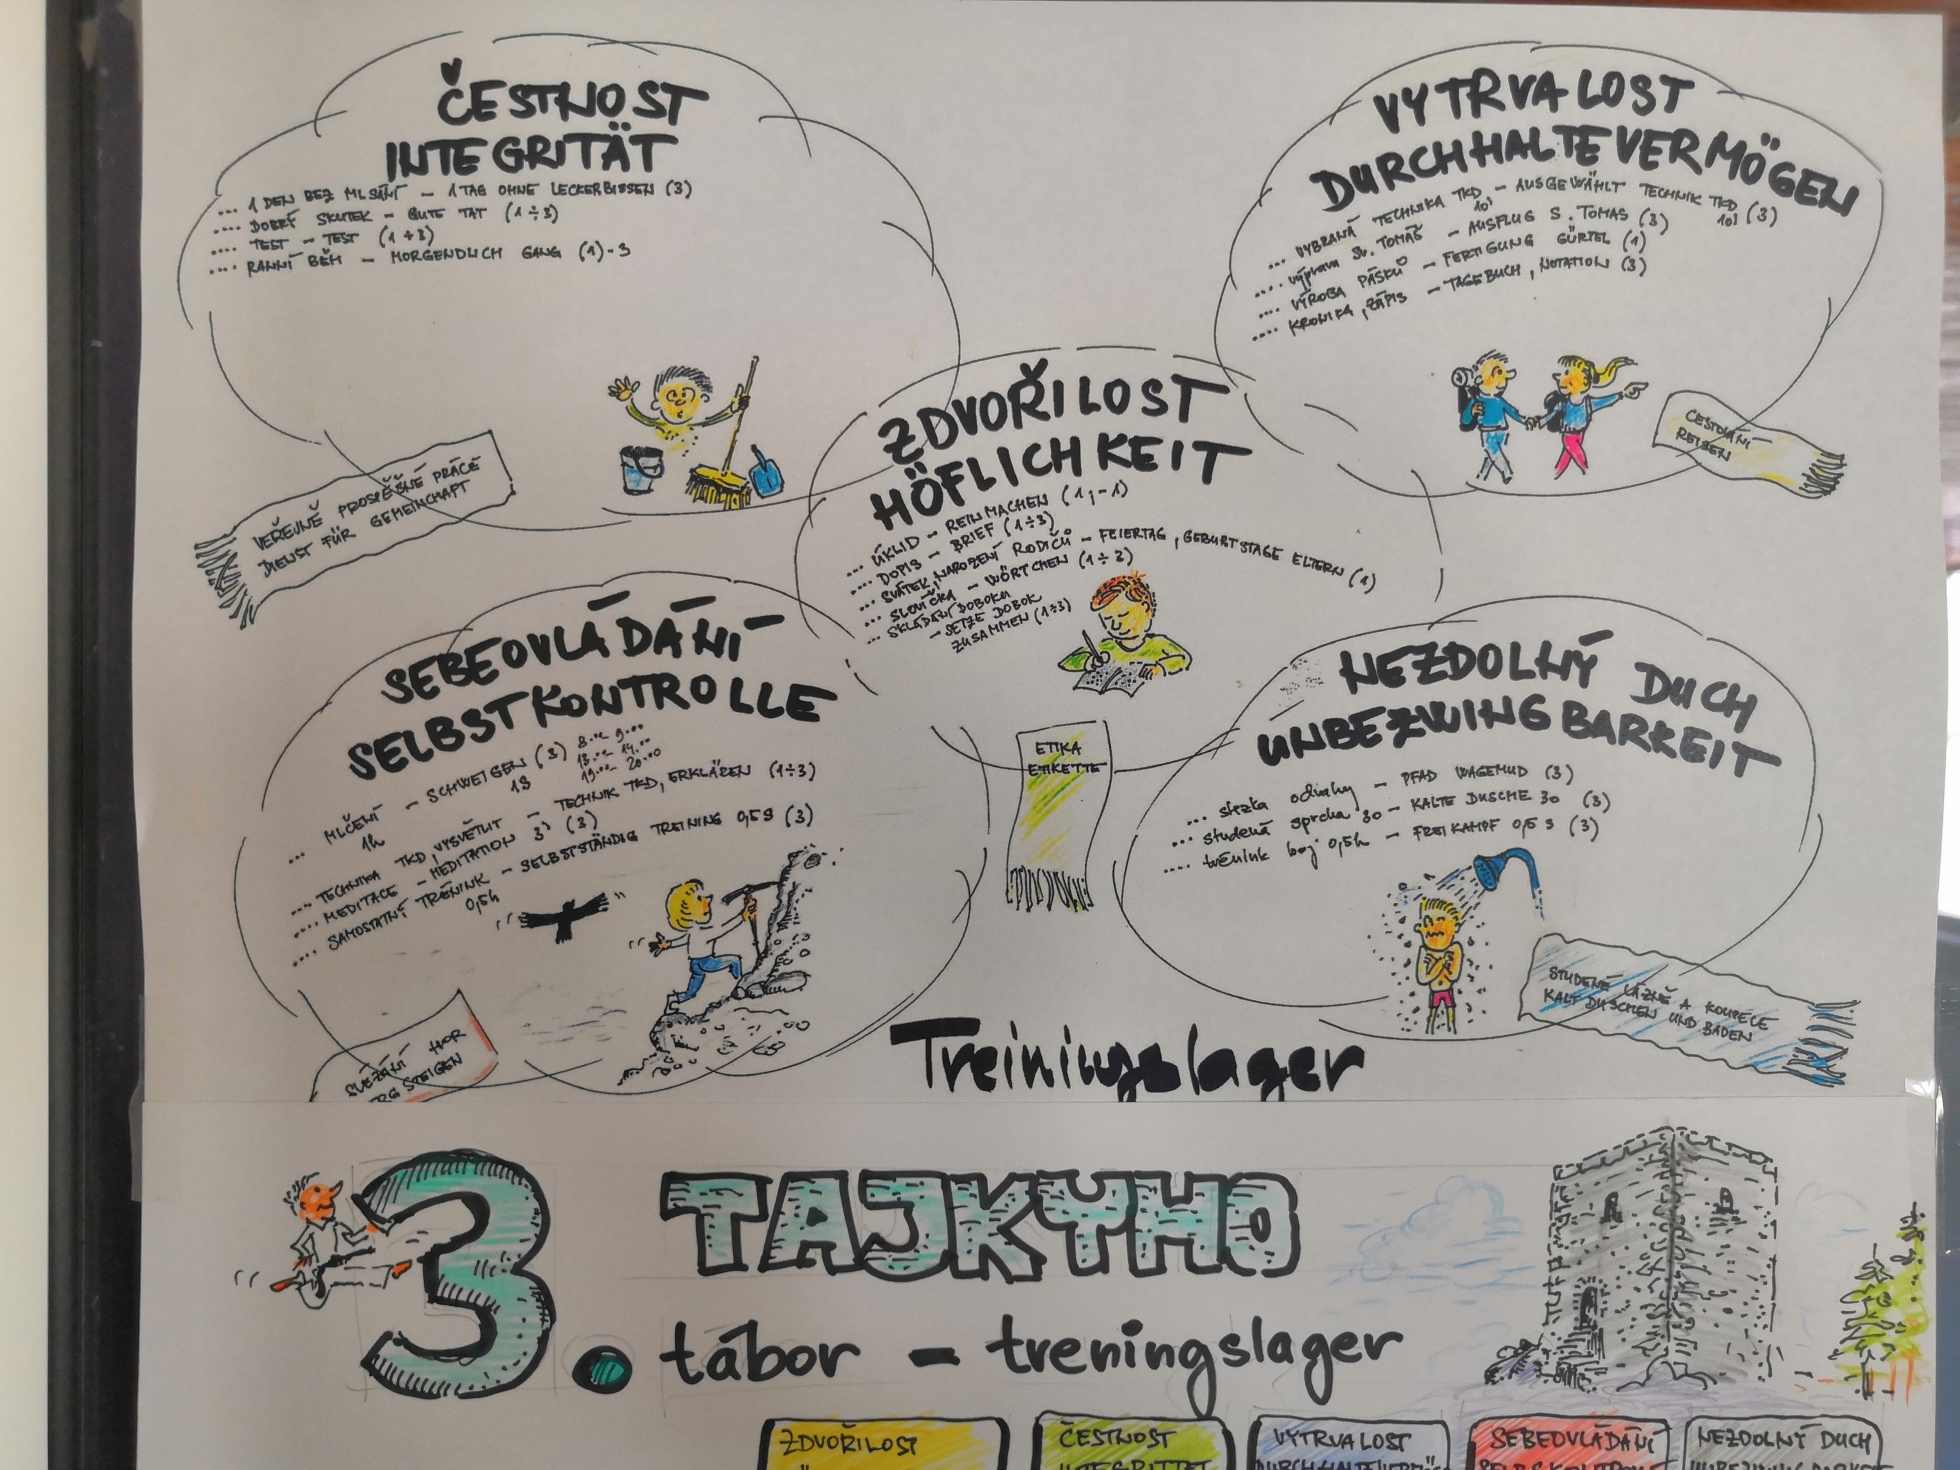 ČESTNOST
INTEGRITÄT
... 1 DEN BEZ MLSÁNÍ - 1 TAG OHNE LECKERBISSEN (3)
.... DOBRÝ SKUTEK - GUTE TAT (1÷3)
.... TEST - TEST (1÷3)
.... RANNÍ BĚH - MORGENDLICH GANG (1)-3
VEŘEJNĚ PROSPĚŠNÉ PRÁCE
DIENST FÜR GEMEINCHAFT
VYTRVALOST
DURCHHALTEVERMÖGEN
... VYBRANÁ TECHNIKA TKD - AUSGEWÄHLT TECHNIK TKD (3)
10' 10'
.... výprava Sv. TOMÁŠ - AUSFLUG S. TOMAS (3)
.... VÝROBA PÁSKŮ - FERTIGUNG GÜRTEL (1)
.... KRONIKA, ZÁPIS - TAGEBUCH, NOTATION (3)
CESTOVÁNÍ
REISEN
ZDVOŘILOST
HÖFLICHKEIT
... ÚKLID - REINMACHEN (1;-1)
... DOPIS - BRIEF (1÷3)
... SVÁTEK, NAROZENÍ RODIČŮ - FEIERTAG, GEBURTSTAGE ELTERN (1)
... SLOVÍČKA - WÖRTCHEN (1÷3)
... SKLÁDÁNÍ DOBOKU
- SETZE DOBOK
ZUSAMMEN (1÷3)
ETIKA
ETIKETTE
SEBEOVLÁDÁNÍ
SELBSTKONTROLLE
... MLČENÍ - SCHWEIGEN (3) 8.00-9.00
1h 1S 13.00-14.00
19.00-20.00
.... TECHNIKA TKD, VYSVĚTLIT - TECHNIK TKD, ERKLÄREN (1÷3)
.... MEDITACE - MEDITATION 3' (3)
.... SAMOSTATNÍ TRÉNINK - SELBSTSTÄNDIG TREINING 0,5S (3)
0,5h
SLÉZÁNÍ HOR
RG STEIGEN
NEZDOLNÝ DUCH
UNBEZWINGBARKEIT
... stezka odvahy - PFAD WAGEMUD (3)
... studená sprcha 30 - KALTE DUSCHE 30 (3)
.... trénink boj 0,5h - FREIKAMPF 0,5 S (3)
STUDENÉ LÁZNĚ A KOUPELE
KALT DUSCHEN UND BADEN
Treiningslager
3. TAJKYHO
tábor - treningslager
ZDVOŘILOST
ČESTNOST
VYTRVALOST
SEBEOVLÁDÁNÍ
NEZDOLNÝ DUCH